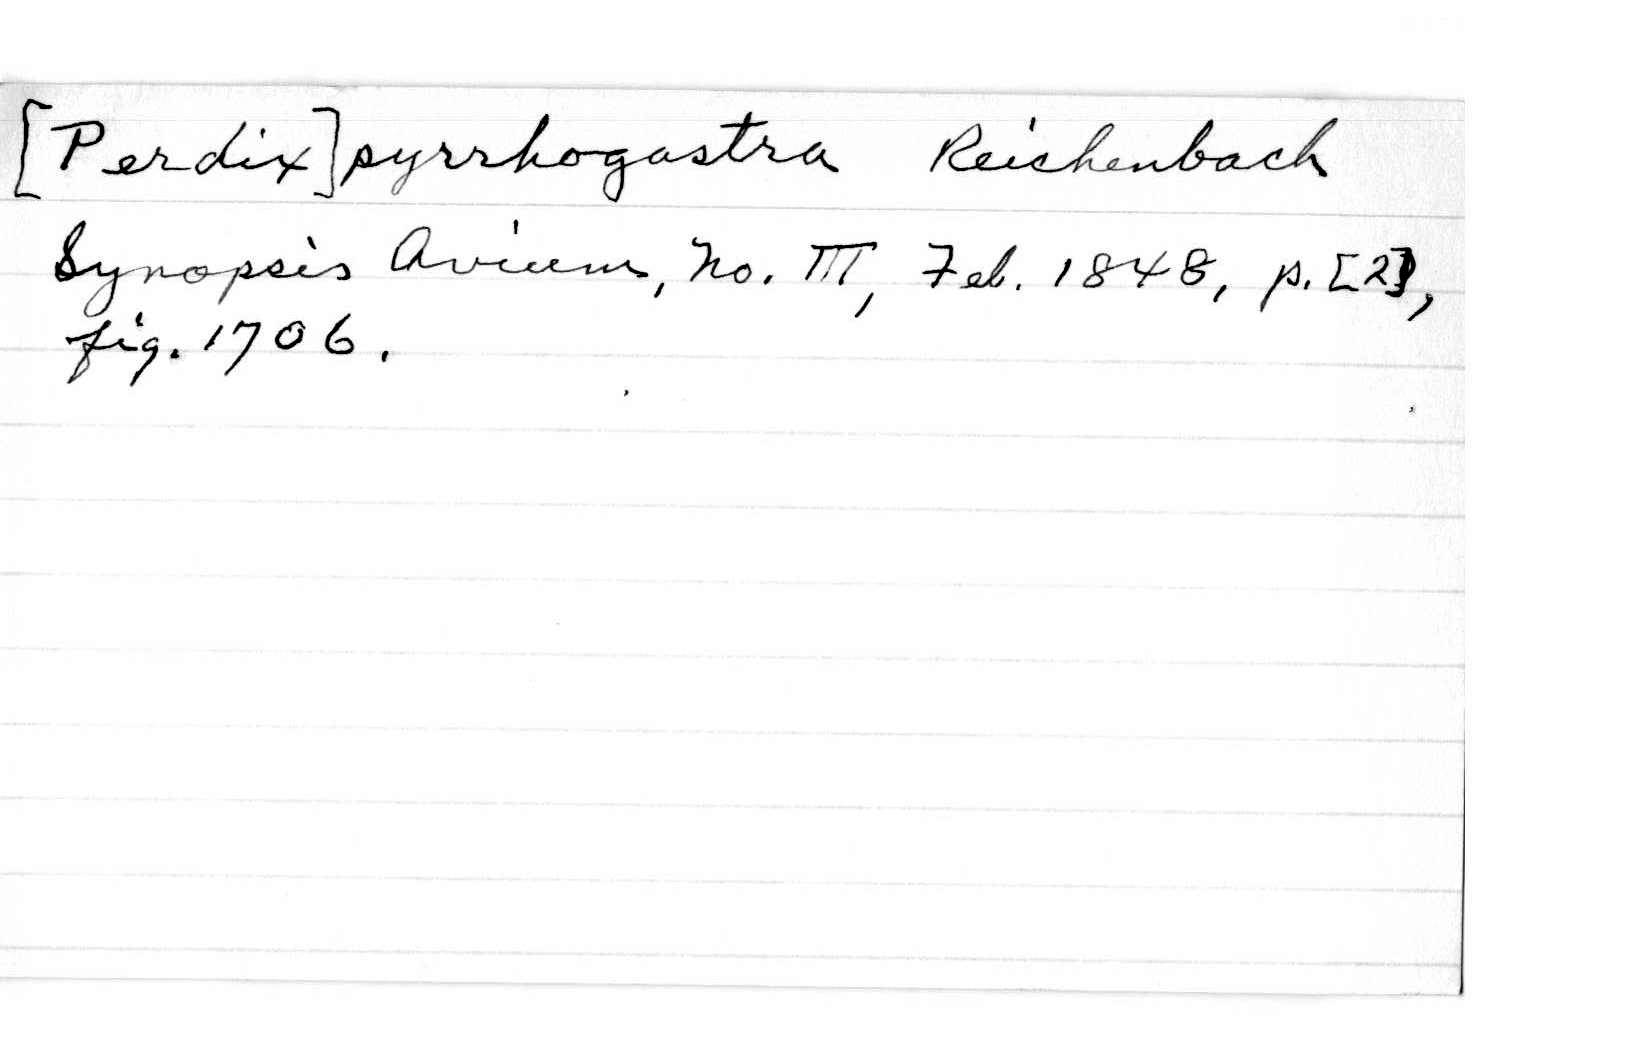 [Perdix] pyrrhogastra Reichenbach
Synopsis Avium, No. III, Feb. 1848, p. [2],
fig. 1706.